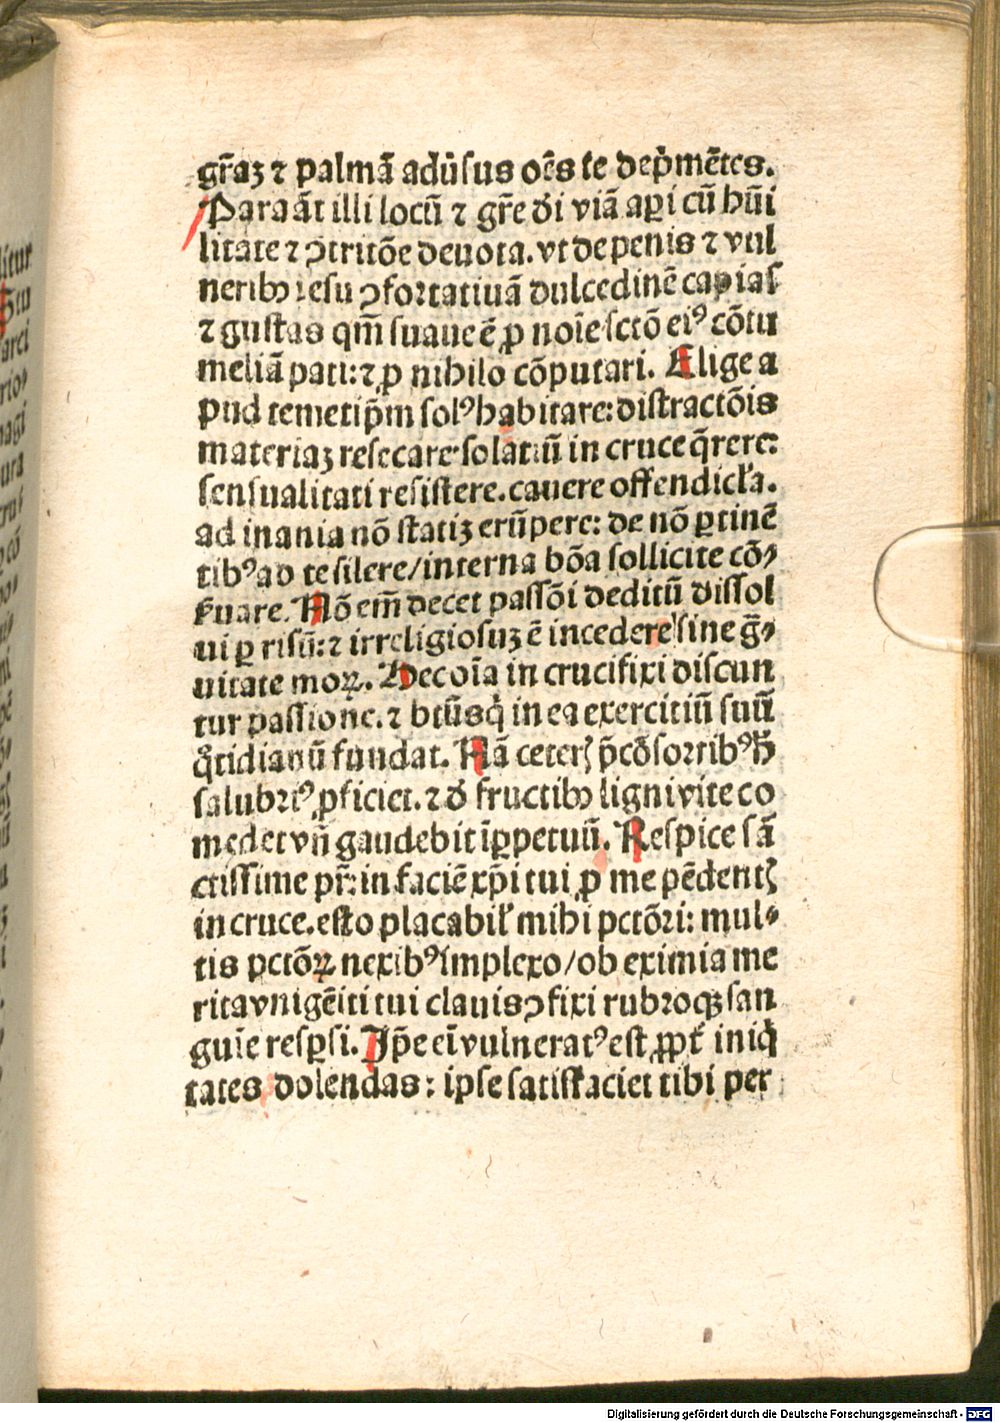 gr̄aꝫ ⁊ palmā adūsus oēs te dep̄mētes.
Para āt illi locū ⁊ gr̄e dī viā aꝑi cū hūi
litate ⁊ ↄtritōe deuota. vt de penis ⁊ vul
neribꝰ iesu ↄfortatiuā dulcedinē capias
⁊ gustas qm̄ suaue ē ꝓ noīe sctō eiꝰ cōtu
meliā pati: ⁊ ꝓ nihilo cōputari. Elige a
pud temetip̄m solꝰ habitare: distractōis
materiaꝫ resecare· solatiū in cruce q̄rere:
sensualitati resistere. cauere offendicl'a.
ad inania nō statiꝫ erūpere: de nō ꝑtinē
tibꝰ ad te silere/interna bōa sollicite cō⸗
ẜuare. Nō em̄ decet passōi deditū dissol
ui ꝑ risū: ⁊ irreligiosuꝫ ē incedere sine ḡ⸗
uitate moꝝ. Hec oīa in crucifixi discun
tur passione. ⁊ btūs qͥ in ea exercitiū suū
qͦtidianū fundat. Nā ceterꝭ p̄ cōsortibꝰ hͦ
salubriꝰ ꝓficiet. ⁊ d̄ fructibꝰ ligni vite co
medet vn̄ gaudebit īꝑpetuū. Respice sā
ctissime pr̄: in faciē xp̄i tui ꝓ me pēdentꝭ
in cruce. esto placabil' mihi pctōri: mul⸗
tis pctōꝝ nexibꝰ implexo/ob eximia me
rita vnigēiti tui clauis ↄfixi rubroqꝫ san
guīe resꝑsi. Ip̄e eī vulneratꝰ est ꝓpt' iniqͥ
tates dolendas: ipse satisfaciet tibi per
Digitalisierung gefördert durch die Deutsche Forschungsgemeinschaft - DFG